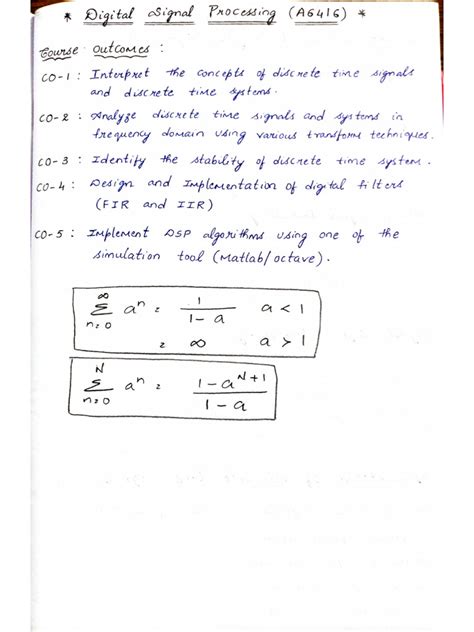 * Digital Signal Processing (A6416) *
Course Outcomes :
CO-1 : Interpret the concepts of discrete time signals
and discrete time systems.
CO-2 : Analyze discrete time signals and systems in
frequency domain using various transform techniques.
CO-3 : Identify the stability of discrete time system.
CO-4 : Design and Implementation of digital filters
(FIR and IIR)
CO-5 : Implement DSP algorithms using one of the
simulation tool (Matlab/octave).
∞
Σ aⁿ = 1/(1-a) a < 1
n=0
= ∞ a > 1
N
Σ aⁿ = (1-a^(N+1))/(1-a)
n=0